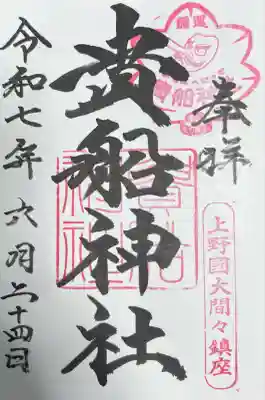 奉拝
上野國大間々鎮座
開運
貴船神社
貴船神社
令和七年 六月二十四日